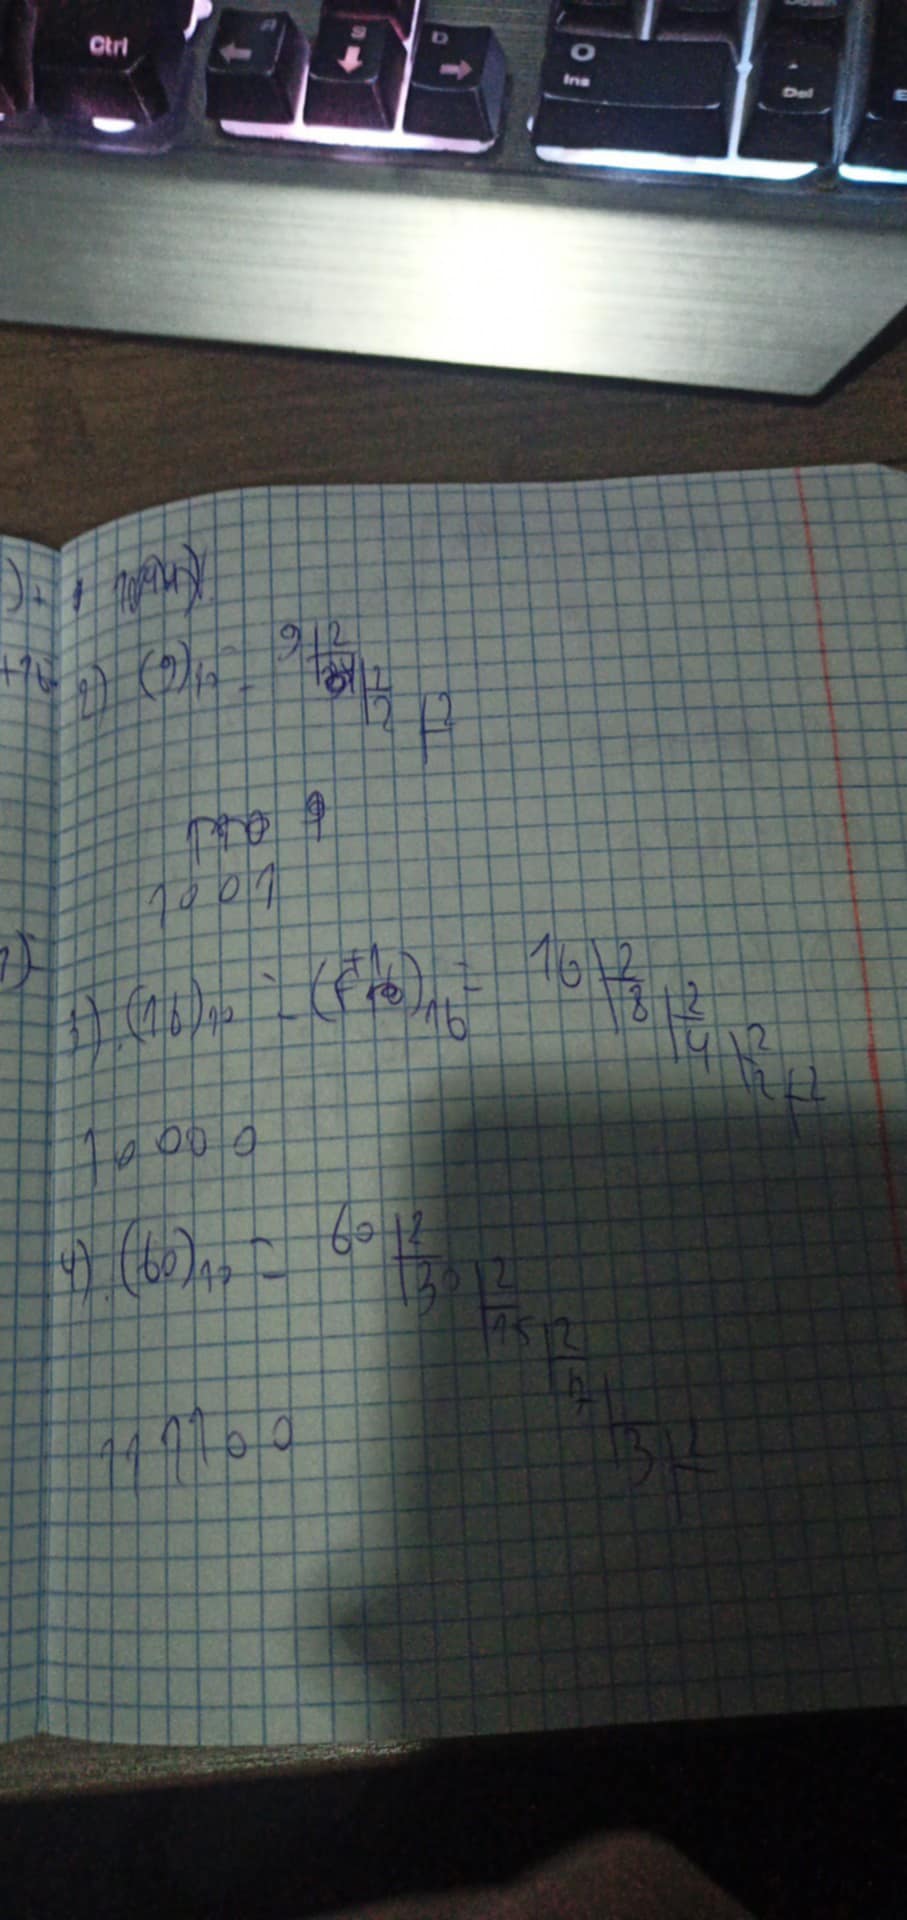 Ctrl
A
S
D
0
Ins
.
Del
2) (9)₁₀ = 9 2
2
2 2
1001
3). (16)₁₀ = ( )₁₆ = 16 2
8 2
4 2
2 2
10000
4). (60)₁₀ = 60 2
30 2
15 2
7
3 2
111100